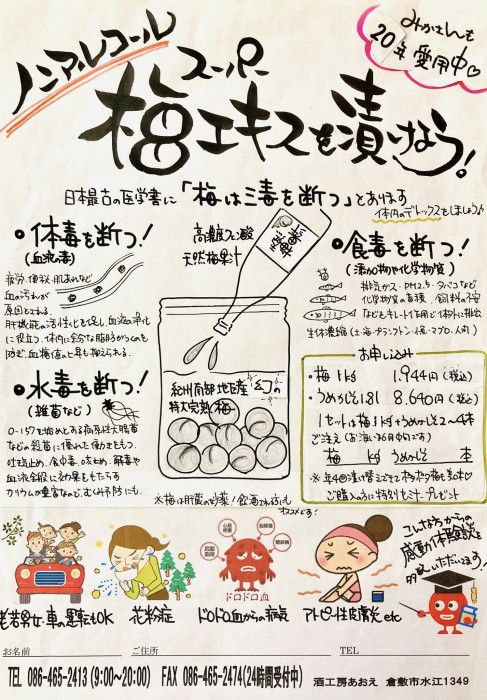 ノンアルコール
みかさんも
20年愛用中♡
スーパー
梅エキスを漬けなう!
日本最古の医学書に「梅は三毒を断つ」とあります
体内のデトックスをしましょう♪
・体毒を断つ!
(血液の毒)
疲労、便秘、肌あれなど
血の汚れが
原因となる。
肝機能の活性化を促し、血液の浄化
に役立つ。体内に余分な脂肪がつくのを
防ぎ、血糖値の上昇も抑えられる。
・水毒を断つ!
(雑菌など)
O-157を始めとする病原性大腸菌
などの殺菌に優れた働きをもつ。
吐気止め、食中毒、咳止め、解毒や
血液全般に効果をもたらす
カリウムが豊富なのでむくみ予防にも。
高濃度クエン酸
天然梅果汁
紀州南部地区産 幻の
特大完熟梅
※梅は肝臓の妙薬!飲酒される方にも
オススメです!
・食毒を断つ!
(添加物や化学物質)
排気ガス・PM2.5・タバコなど
化学物質の蓄積、飼料の不安
などをキレート作用で体外に排出
生体濃縮(土・海・プランクトン・小魚・マグロ・人間)
お申し込み
・梅1kg 1,944円(税込)
・うめかしぞ1.8l 8,640円(税込)
1セットは梅1kg+うめかしぞ2〜4本
ご注文(
梅 kg うめかしぞ 本
ご購入の方に特別もろ汁プレゼント
老若男女・車の運転もOK
花粉症
心筋梗塞
脳梗塞
高血圧
糖尿病
ドロドロ血
ドロドロ血からの病気
アトピー性皮膚炎 etc
感動体験談を
多数いただいてます!
お名前 ご住所 TEL
TEL 086-465-2413 (9:00〜20:00) FAX 086-465-2474 (24時間受付中) 酒工房あおえ 倉敷市水江1349